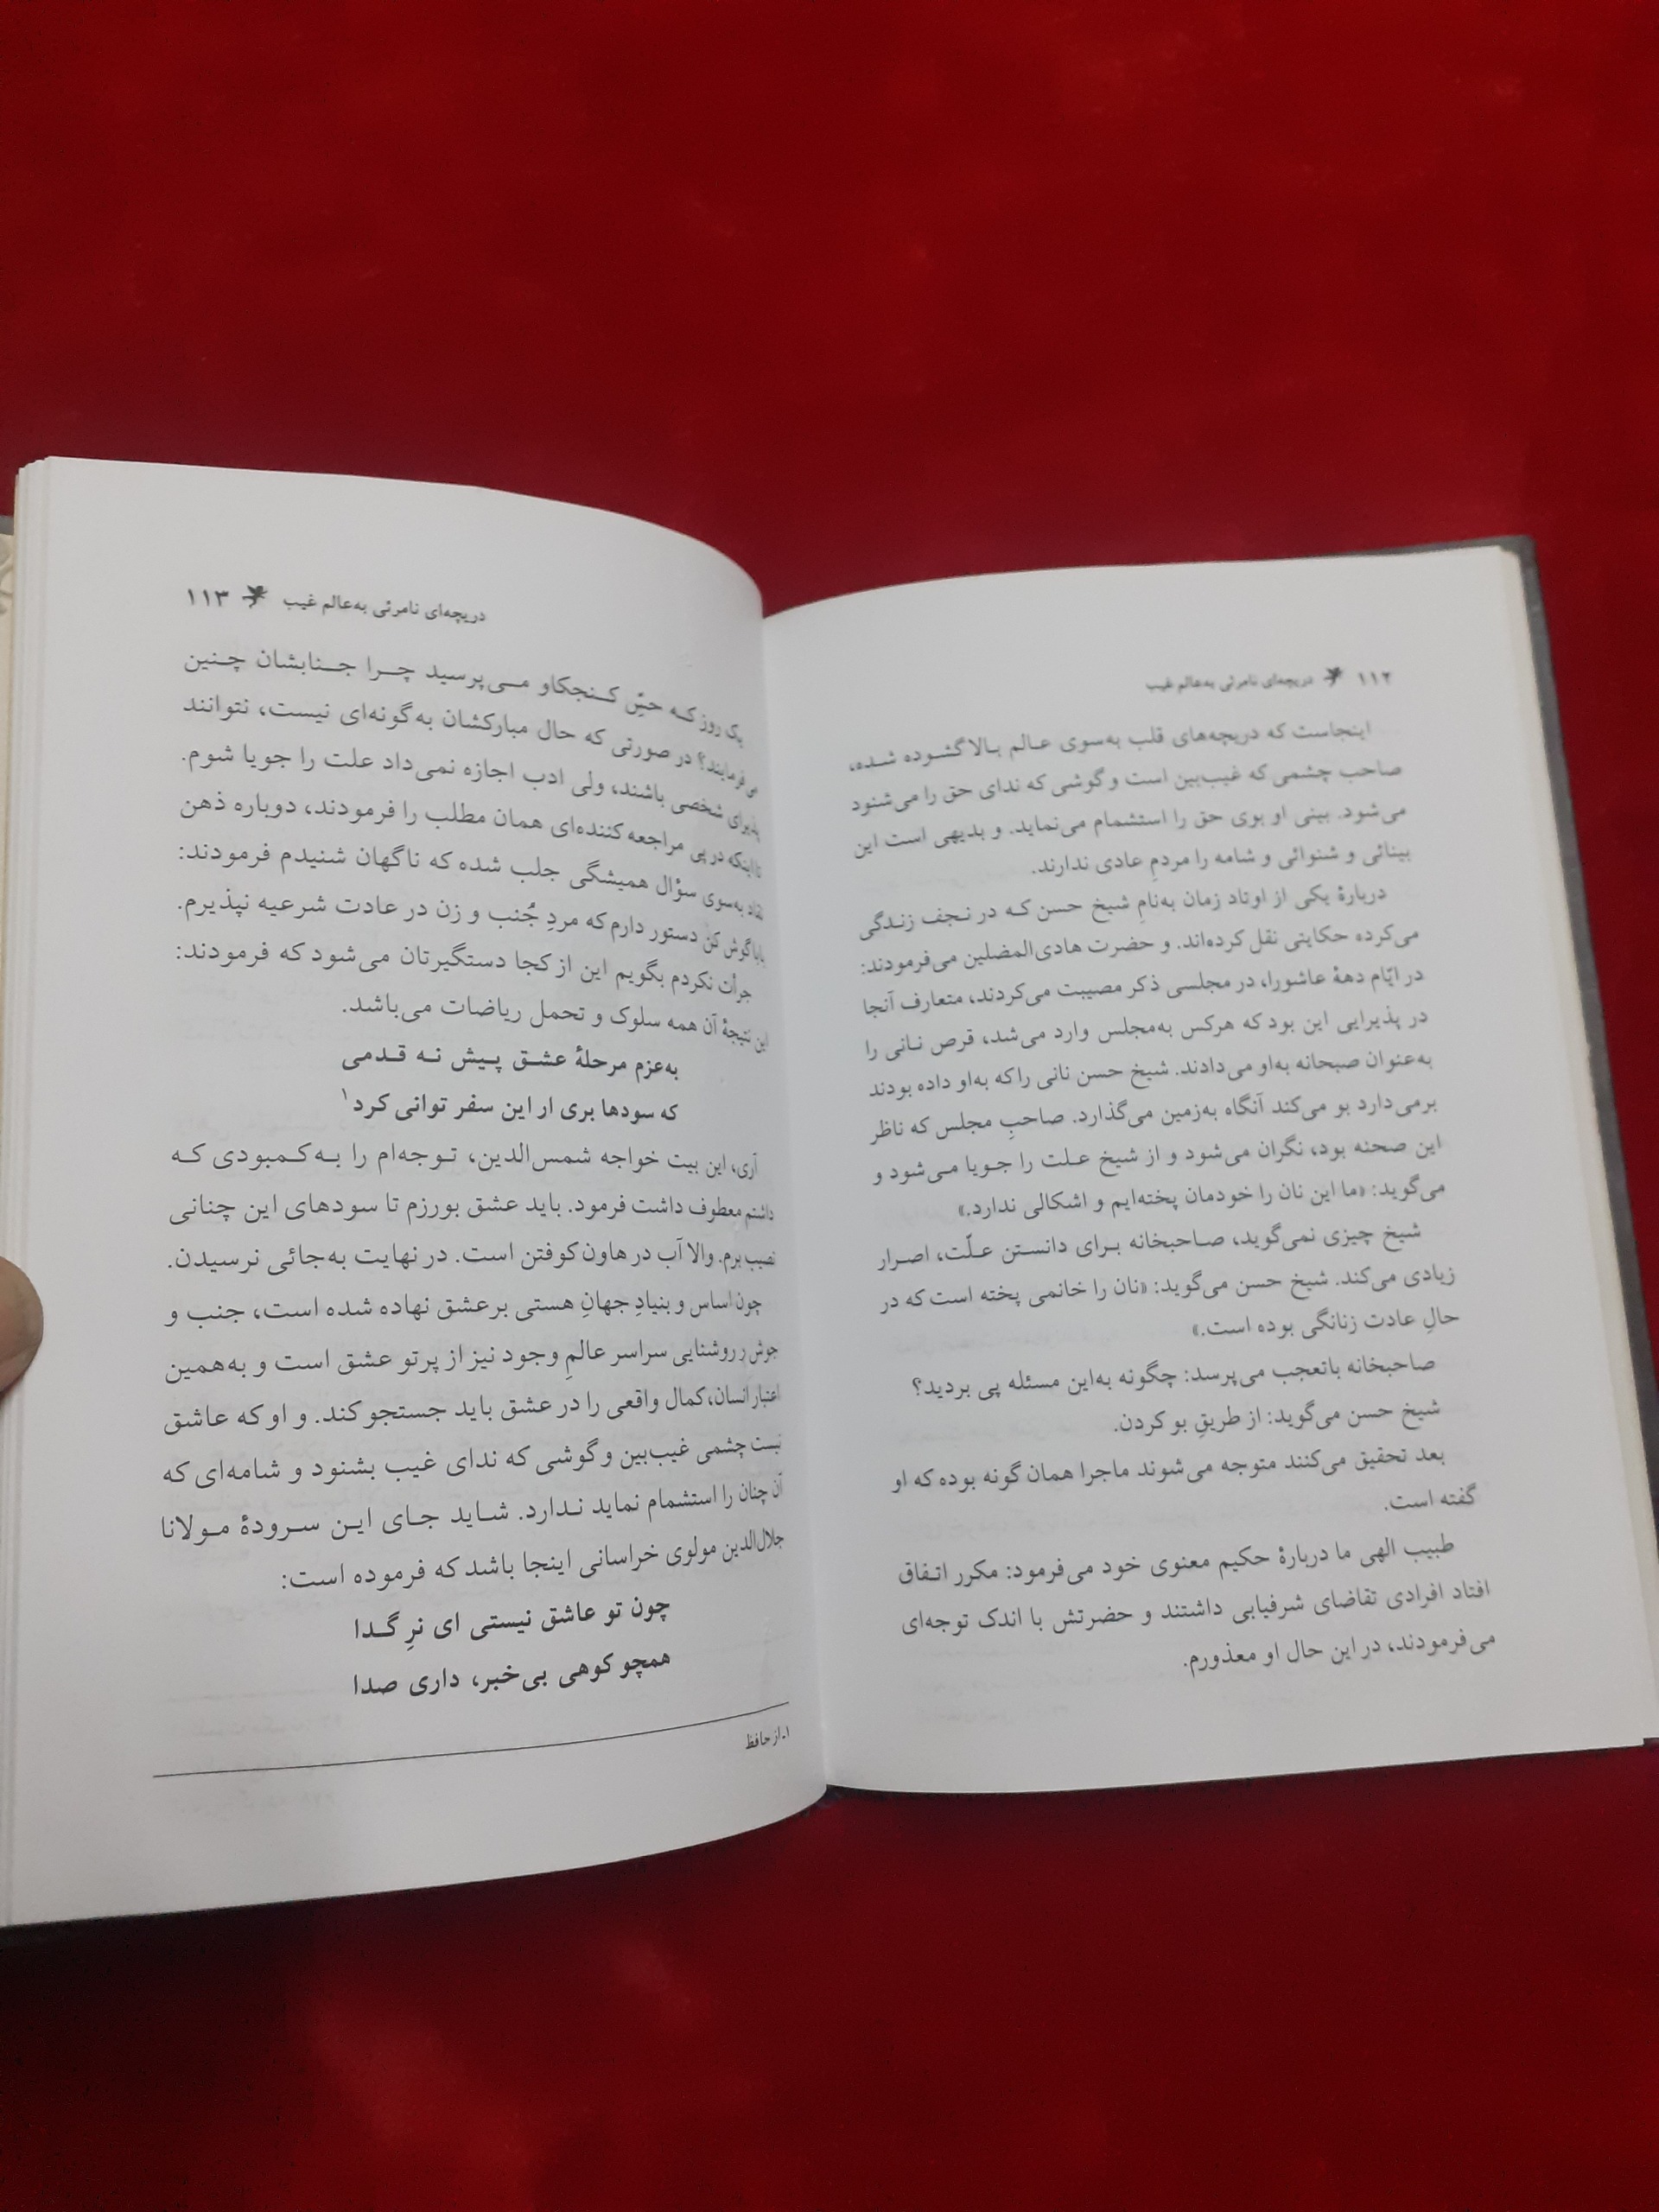 ۱۱۲ دریچه‌ای نامرئی به‌عالم غیب
اینجاست که دریچه‌های قلب به‌سوی عالم بالا گشوده شده،
صاحب چشمی که غیب‌بین است و گوشی که ندای حق را می‌شنود
می‌شود. بینی او بوی حق را استشمام می‌نماید. و بدیهی است این
بینائی و شنوائی و شامه را مردمِ عادی ندارند.
دربارهٔ یکی از اوتاد زمان به‌نامِ شیخ حسن که در نجف زندگی
می‌کرده حکایتی نقل کرده‌اند. و حضرت هادی‌المضلین می‌فرمودند:
در ایّام دههٔ عاشورا، در مجلسی ذکر مصیبت می‌کردند، متعارف آنجا
در پذیرایی این بود که هرکس به‌مجلس وارد می‌شد، قرص نانی را
به‌عنوان صبحانه به‌او می‌دادند. شیخ حسن نانی را که به‌او داده بودند
برمی‌دارد بو می‌کند آنگاه به‌زمین می‌گذارد. صاحبِ مجلس که ناظر
این صحنه بود، نگران می‌شود و از شیخ علت را جویا می‌شود و
می‌گوید: «ما این نان را خودمان پخته‌ایم و اشکالی ندارد.»
شیخ چیزی نمی‌گوید، صاحبخانه برای دانستن علّت، اصرار
زیادی می‌کند. شیخ حسن می‌گوید: «نان را خانمی پخته است که در
حالِ عادت زنانگی بوده است.»
صاحبخانه باتعجب می‌پرسد: چگونه به‌این مسئله پی بردید؟
شیخ حسن می‌گوید: از طریقِ بو کردن.
بعد تحقیق می‌کنند متوجه می‌شوند ماجرا همان گونه بوده که او
گفته است.
طبیب الهی ما دربارهٔ حکیم معنوی خود می‌فرمود: مکرر اتفاق
افتاد افرادی تقاضای شرفیابی داشتند و حضرتش با اندک توجه‌ای
می‌فرمودند، در این حال او معذورم.
دریچه‌ای نامرئی به‌عالم غیب ۱۱۳
یک روز که حسِّ کنجکاو می‌پرسید چرا جنابشان چنین
می‌فرمایند؟ در صورتی که حال مبارکشان به‌گونه‌ای نیست، نتوانند
پذیرای شخصی باشند، ولی ادب اجازه نمی‌داد علت را جویا شوم.
تا اینکه در پی مراجعه‌کننده‌ای همان مطلب را فرمودند، دوباره ذهن
به‌سوی سؤال همیشگی جلب شده که ناگهان شنیدم فرمودند:
بابا گوش کن دستور دارم که مردِ جُنب و زن در عادت شرعیه نپذیرم.
جرأت نکردم بگویم این از کجا دستگیرتان می‌شود که فرمودند:
این نتیجهٔ آن همه سلوک و تحمل ریاضات می‌باشد.
به‌عزم مرحلهٔ عشق پیش نه قدمی
که سودها بری ار این سفر توانی کرد۱
آری، این بیت خواجه شمس‌الدین، توجه‌ام را به‌کمبودی که
داشتم معطوف داشت فرمود. باید عشق بورزم تا سودهای این چنانی
نصیب برم. والا آب در هاون کوفتن است. در نهایت به‌جائی نرسیدن.
چون اساس و بنیادِ جهانِ هستی بر عشق نهاده شده است، جنب و
جوش و روشنایی سراسر عالمِ وجود نیز از پرتو عشق است و به‌همین
اعتبار انسان، کمال واقعی را در عشق باید جستجو کند. و او که عاشق
نیست چشمی غیب‌بین و گوشی که ندای غیب بشنود و شامه‌ای که
آن چنان را استشمام نماید ندارد. شاید جای این سرودهٔ مولانا
جلال‌الدین مولوی خراسانی اینجا باشد که فرموده است:
چون تو عاشق نیستی ای نرِ گدا
همچو کوهی بی‌خبر، داری صدا
۱-از حافظ